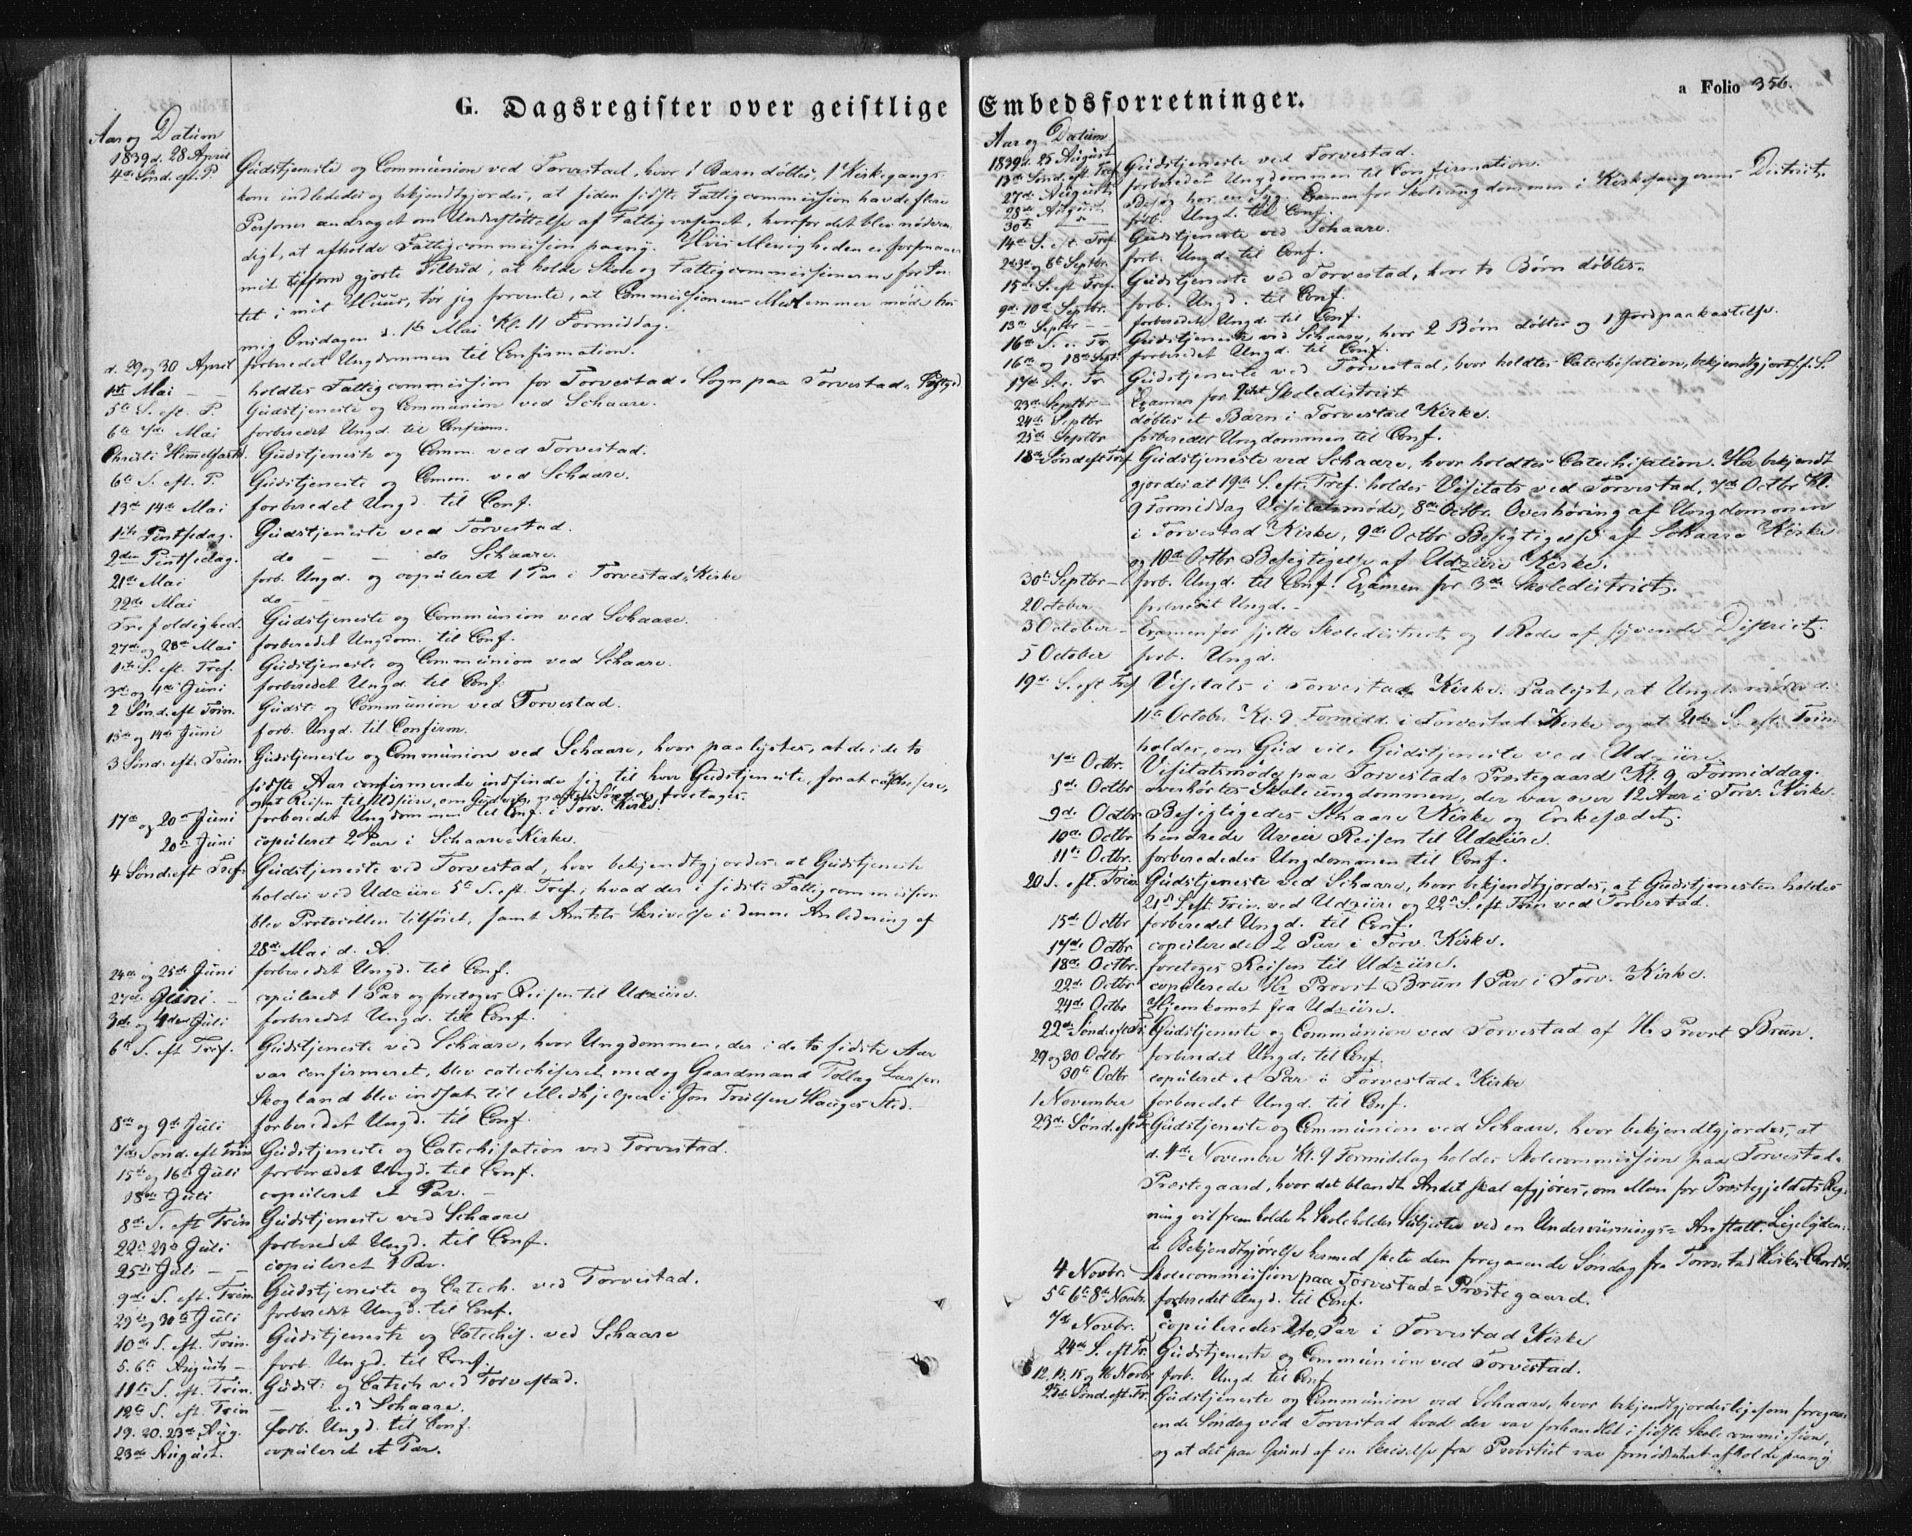 a Folio 356.
G. Dagsregister over geistlige Embedsforretninger.
Aar og Datum
1839 d. 28 April Gudstjeneste og Communion ved Torvestad, hvor 1 Barn døbtes, 1 Kirkegangs-
4de Sønd. eft. P. kone indlededes og bekjendtgjordes, at siden sidste Fattigcommission havde flere
Personer andraget om Understøttelse af Fattigvæsenet, hvorfor det blev nødven-
digt, at afholde Fattigcommission paany. Hvis Menigheden ei forsmaaer
mit tilforn gjorte Tilbud, at holde Skole og Fattigcommissionerne for
tet i mit Huus, tør jeg forvente, at Commissionens Medlemmer møde hos
mig Onsdagen d. 1ste Mai Kl. 11 Formiddag.
d. 29 og 30 April forberedet Ungdommen til Confirmation.
1ste Mai holdtes Fattigcommission for Torvestads Sogn paa Torvestads
5te S. eft. P. Gudstjeneste og Communion ved Schaare.
6te 7de Mai forberedet Ungd. til Confirm.
Christi Himmelfarts Gudstjeneste og Comm. ved Torvestad.
6te S. eft. P. Gudstjeneste og Comm. ved Schaare.
13de 14de Mai forberedet Ungd. til Conf.
1ste Pintsedag. Gudstjeneste ved Torvestad.
2den Pintsedag. do — — do Schaare.
21de Mai forb. Ungd. og copuleret 1 Par i Torvestads Kirke
22de Mai do —
Trefoldighed. Gudstjeneste og Communion ved Schaare.
27de og 28de Mai forberedet Ungdom. til Conf.
1ste S. eft. Tref. Gudstjeneste og Communion ved Schaare.
3die og 4de Juni forberedet Ungd. til Conf.
2 Sønd. eft Trin. Gudst. og Communion ved Torvestad.
13de og 14de Juni forb. Ungd. til Confirm.
3 Sønd. eft. Trin. Gudstjeneste og Communion ved Schaare, hvor paalystes, at de i de to
sidste Aar confirmerede indfinde sig til hver Gudstjeneste, for at catechiseres,
og at Reisen til Udsire, om Gud vil, næste Søndag foretages.
17de og 20de Juni forberedet Ungdommen til Conf. i Torv. Kirke.
20de Juni copuleret 2 Par i Schaare Kirke.
4 Sønd. eft Tref. Gudstjeneste ved Torvestad, hvor bekjendtgjordes at Gudstjeneste
holdes ved Udzüre 5te S. eft. Tref., hvad der i sidste Fattigcommission
blev Protocollen tilføiet, samt Amtets Skrivelse i denne Anledning af
28de Mai d. A.
24de og 25de Juni forberedet Ungd. til Conf.
27de Juni. copuleret 1 Par og foretoges Reisen til Udzüre.
3die og 4de Juli forberedet Ungd. til Conf.
6te S. eft Tref. Gudstjeneste ved Schaare, hvor Ungdommen, der i de to sidste Aar
var confirmeret, blev catechiseret med og Gaardmand Tollag Larsen
Skogland blev indsat til Medhjelper i Jon Trulsen Hauges Sted.
8de og 9de Juli forberedet Ungd. til Conf.
7de Sønd. eft Trin Gudstjeneste og Catechisation ved Torvestad.
15de og 16de Juli forberedet Ungd. til Conf.
18de Juli copuleret et Par.
8de S. eft Trin Gudstjeneste ved Schaare
22de 23de Juli forberedet Ungd. til Conf.
25de Juli — copuleret 1 Par.
9de S. eft. Trin. Gudstjeneste og Catech. ved Torvestad.
29de og 30te Juli forberedet Ungd. til Conf.
10de S. eft. Trin. Gudstjeneste og Catechis. ved Schaare
5. 6te August — forb. Ungd. til Conf.
11te S. eft. Trin. Gudst. og Catech ved Torvestad.
12te S. eft. Trin — ved Schaare.
19. 20. 23de Aug. forb. Ungd. til Conf.
23de August. copuleret et Par.
Aar og Datum
1839 d. 25 August Gudstjeneste ved Torvestad.
13de Sønd. eft. Tref. forberedet Ungdommen til Confirmation.
27de August Besøg hos en Syg. Examen for Skoleungdommen i Kirkesangerens District.
28de August forb. Ungd. til Conf.
30te — —
14de S. eft. Tref. Gudstjeneste ved Schaare.
2de 3die og 6te Septbr. forb. Ungd. til Conf.
15de S. eft Tref. Gudstjeneste ved Torvestad, hvor to Børn døbtes.
9de 10de Septbr. forb. Ungd. til Conf.
13de Septbr — forberedet Ungd. til Conf.
16de S. e. Tr. Gudstjeneste ved Schaare, hvor 2 Børn døbtes og 1 Jordpaakastelse.
16de og 18de Sept. forberedet Ungd. til Conf.
17de S. e. Tr. Gudstjeneste ved Torvestad, hvor holdtes Catechisation, bekjendtgjort
23de Septbr — Examen for Skoledistrict
24de Septbr døbtes et Barn i Torvestad Kirke.
25de Septbr forberedet Ungdommen til Conf.
18de Sønd eft Tref. Gudstjeneste ved Schaare, hvor holdtes Catechisation. Her bekjendt
gjordes at 19de S. eft. Tref. holdes Visitats ved Torvestad, 7de Octbr Kl.
9 Formiddag Visitatsmøde, 8de Octbr. Overhøring af Ungdommen
i Torvestad Kirke, 9de Octbr Besigtigelse af Schaare Kirke
og 10de Octbr Besigtigelse af Udzüre Kirke.
30te Septbr — forb. Ungd. til Conf. Examen for 3die Skoledistrict.
2 October forberedet Ungd. —
3 October — Examen for sjette Skoledistrict og 1 Rode af syvende District.
5 October forb. Ungd.
19de S. eft Tref Visitats i Torvestads Kirke. Paalyst, at Ungd. møder d.
11te October Kl. 9 Formidd. i Torvestad Kirke og at 21de S. eft. Trin.
holdes, om Gud vil, Gudstjeneste ved Udzüre
7de Octbr. Visitatsmøde paa Torvestads Præstegaard Kl. 9 Formiddag.
8de Octbr overhørtes Skoleungdommen, der var over 12 Aar i Torv. Kirke.
9de Octbr Besigtigedes Schaare Kirke og Enkesædet.
10de Octbr hindrede Uveir Reisen til Udzüre.
11te Octbr. forberededes Ungdommen til Conf.
20 S. eft. Trin Gudstjeneste ved Schaare, hvor bekjendtgjordes, at Gudstjenesten holdes
21de S. eft Trin. ved Udzüre og 22de S. eft Trin ved Torvestad.
15de Octbr forberedet Ungd. til Conf.
17de Octbr copuleredes 2 Par i Torv. Kirke.
18de Octbr. foretoges Reisen til Udzüre.
22de Octbr. copulerede Hr Provst Brun 1 Par i Torv. Kirke.
24de Octbr Hjemkomst fra Udzüre.
22de Sønd. eft Tr. Gudstjeneste og Communion ved Torvestad af Hr Provst Brun.
29 og 30 Octbr forberedet Ungd. til Conf.
30te Octbr copuleret et Par i Torvestads Kirke
1 November forberedet Ungd. til Conf.
23de Sønd. eft Tr Gudstjeneste og Communion ved Schaare, hvor bekjendtgjordes, at
d. 4de November Kl. 9 Formiddag holdes Skolecommission paa Torvestads
Præstegaard, hvor det blandt Andet skal afgjøres, om Man for Præstegjeldets Reg-
ning vil fremholde 2 Skoleholder Subjecter ved en Underviisnings-Anstalt. Ligelyden-
de Bekjendtgjørelse hermed skete den foregaaende Søndag fra Torvestad Kirkes Chordør.
4 Novbr. Skolecommission paa Torvestads Præstegaard.
5te 6te 8de Novbr. forberedet Ungd. til Conf.
7de Novbr. copuleredes to Par i Torvestad Kirke
24de S. eft Tr. Gudstjeneste og Communion ved Torvestad.
12. 13. 15 og 16 Novbr. forb. Ungd til Conf
25de Sønd. eft. Tr. Gudstjeneste og Communion ved Schaare, hvor bekjendtgjordes ligesom foregaa-
ende Søndag ved Torvestad hvad der var forhandlet i sidste Skolecommission,
og at det paa Grund af en Skrivelse fra Provstiet var fornødent at afholde paany